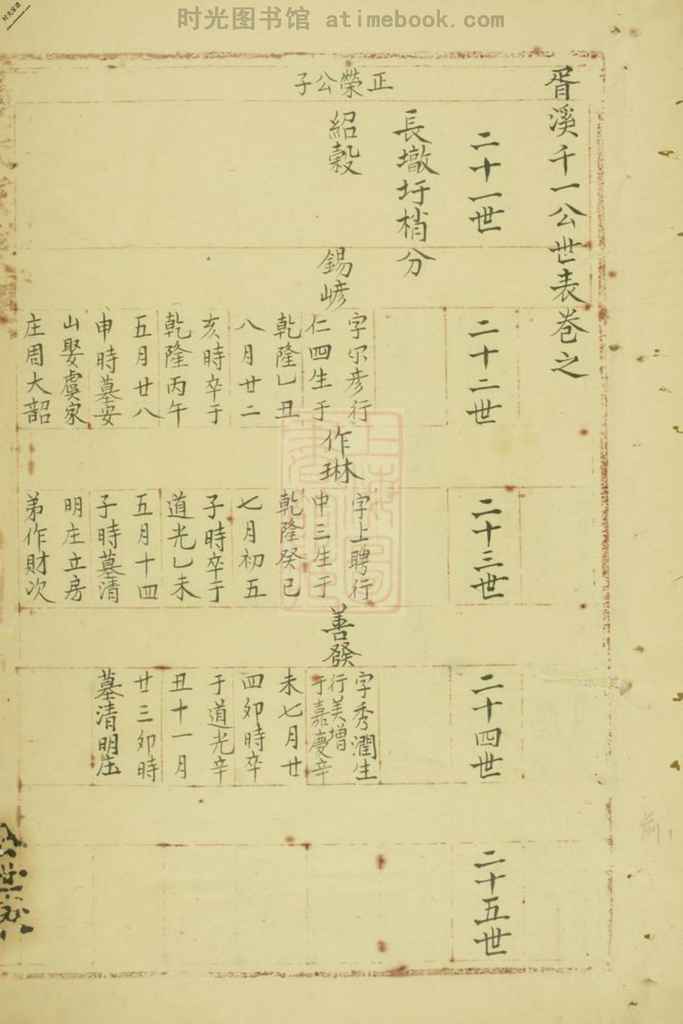 时光图书馆 atimebook.com
胥溪千一公世表卷之
二十一世
二十二世
二十三世
二十四世
二十五世
長墩圩梢分
正榮公子
紹穀
錫嵃
字尔彦行
仁四生于
乾隆乙丑
八月廿二
亥時卒于
乾隆丙午
五月廿八
申時墓安
山娶虞家
庄周大韶
作琳
字上聘行
中三生于
乾隆癸巳
七月初五
子時卒于
道光乙未
五月十四
子時墓清
明庄立房
弟作財次
善發
字秀潤生
行美增
于嘉慶辛
未七月廿
四卯時卒
于道光辛
丑十一月
廿三卯時
墓清明庄